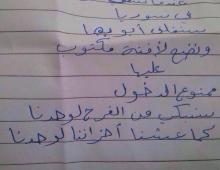 في سوريا
سنغلق أبوبها
ونضع لافتة مكتوب
عليها
ممنوع الدخول
سنبكي من الفرح لوحدنا
كما عشنا أحزاننا لوحدنا